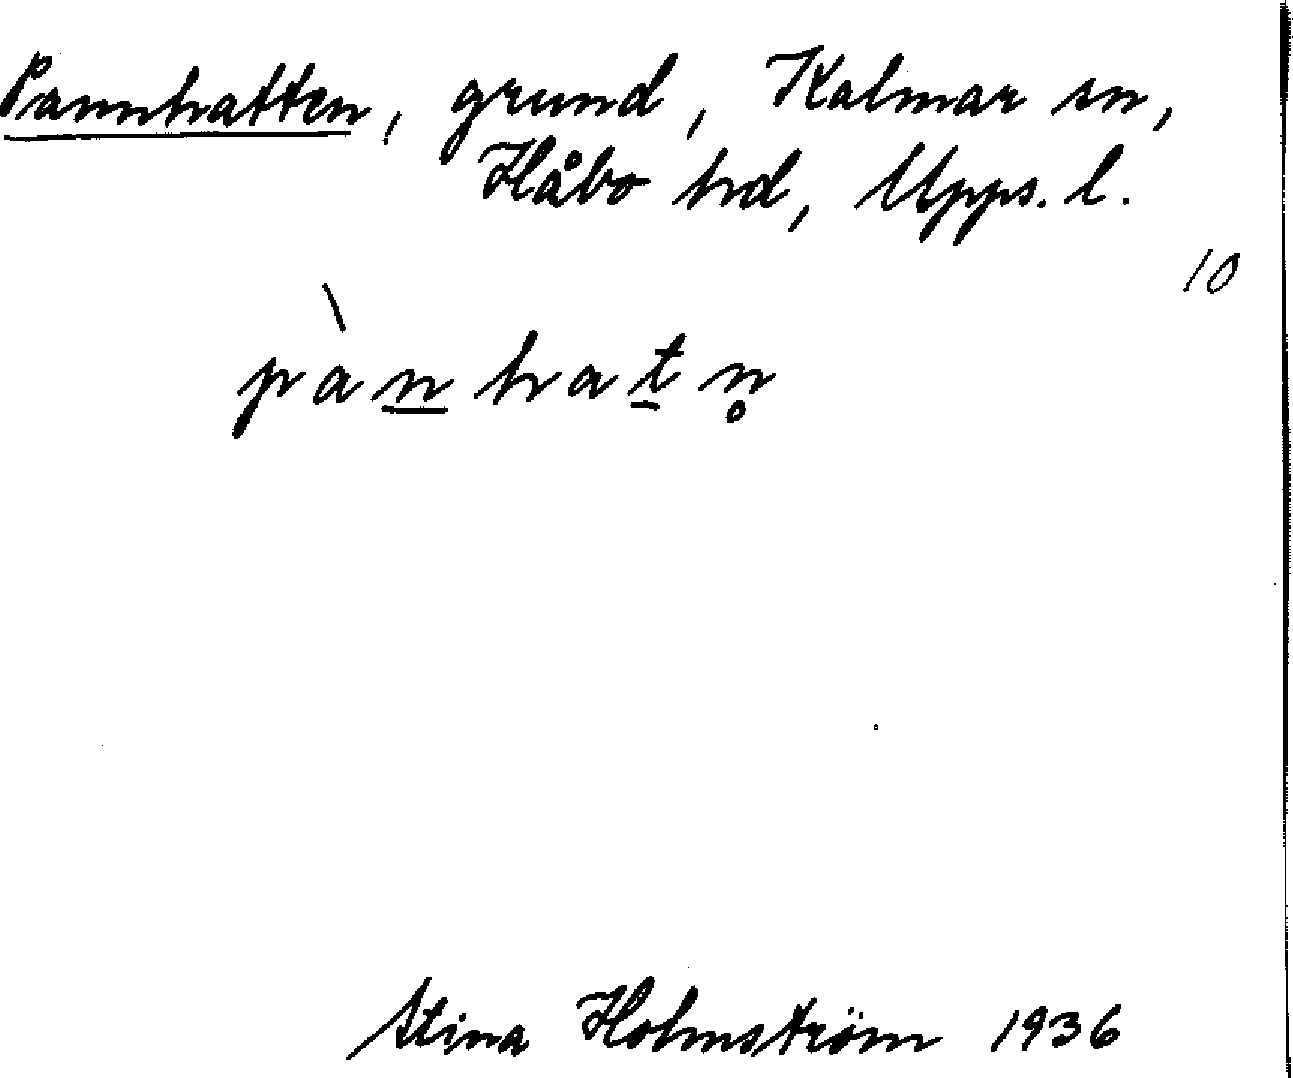 Pannhatten, grund, Kalmar sn,
Håbo hd, Upps. l.
10
pànhatn̥
Stina Holmström 1936